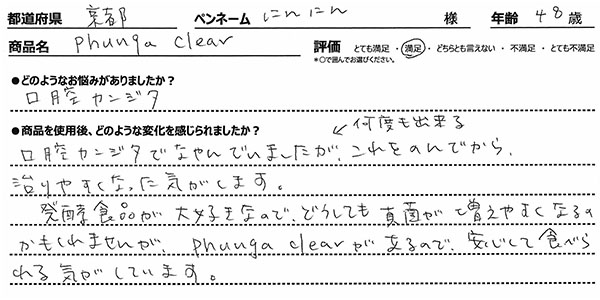 都道府県 京都 ペンネーム にんにん 様 年齢 48 歳
商品名 Phunga clear 評価 とても満足 ・ 満足 ・ どちらとも言えない ・ 不満足 ・ とても不満足
*○で囲んでお選びください。
●どのようなお悩みがありましたか？
口腔カンジタ
●商品を使用後、どのような変化を感じられましたか？
↙何度も出来る
口腔カンジタでなやんでいましたが、これをのんでから、
治りやすくなった気がします。
発酵食品が大好きなので、どうしても真菌が増えやすくなるの
かもしれませんが、phunga clearがあるので、安心して食べら
れる気がしています。